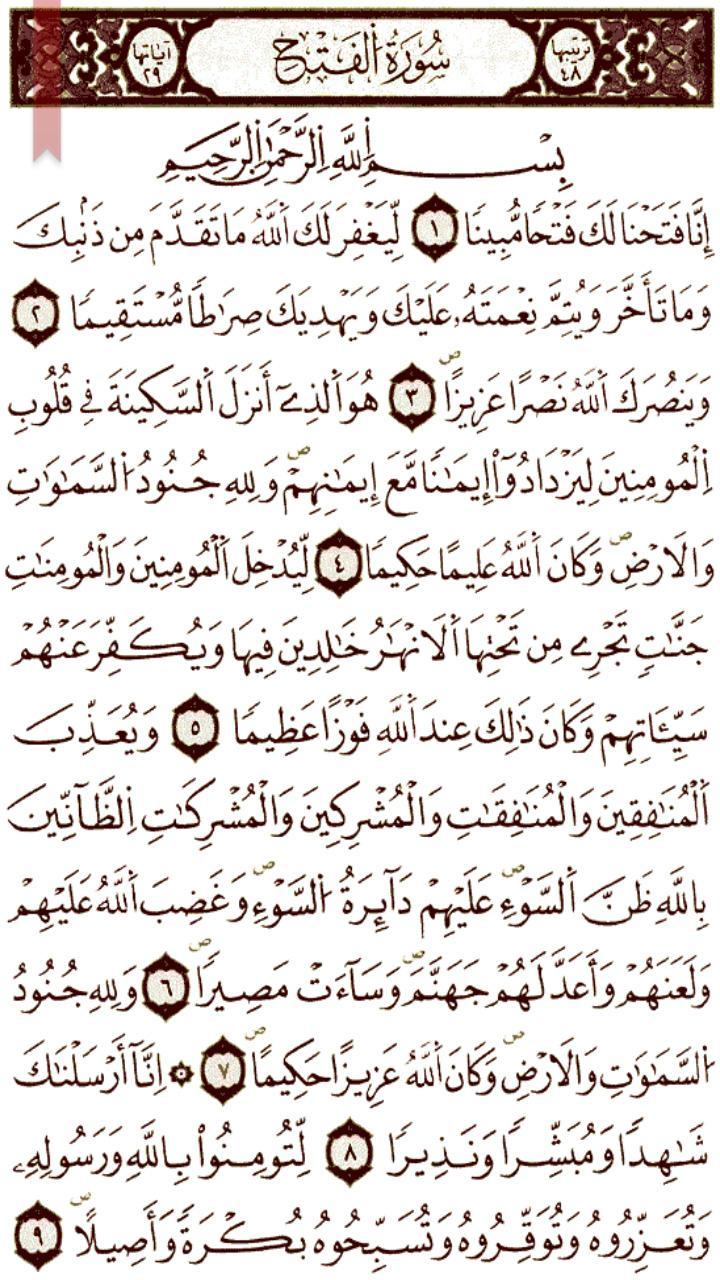 ترتيبها ٤٨ سُورَةُ اُلْفَتْحِ آياتها ٢٩
بِسْمِ اِللَّهِ اِلرَّحْمَٰنِ اِلرَّحِيمِ
إِنَّا فَتَحْنَا لَكَ فَتْحاٗ مُّبِيناٗ ١ لِّيَغْفِرَ لَكَ اَللَّهُ مَا تَقَدَّمَ مِن ذَنۢبِكَ
وَمَا تَأَخَّرَ وَيُتِمَّ نِعْمَتَهُۥ عَلَيْكَ وَيَهْدِيَكَ صِرَٰطاٗ مُّسْتَقِيماٗ ٢
وَيَنصُرَكَ اَللَّهُ نَصْراً عَزِيزاًۖ ٣ هُوَ اَلذِےٓ أَنزَلَ اَلسَّكِينَةَ فِے قُلُوبِ
اِلْمُومِنِينَ لِيَزْدَادُوٓاْ إِيمَٰناٗ مَّعَ إِيمَٰنِهِمْۖ وَلِلهِ جُنُودُ اُلسَّمَٰوَٰتِ
وَالَارْضِۖ وَكَانَ اَللَّهُ عَلِيماً حَكِيماٗ ٤ لِّيُدْخِلَ اَلْمُومِنِينَ وَالْمُومِنَٰتِ
جَنَّٰتٖ تَجْرِے مِن تَحْتِهَا اَلَانْهَٰرُ خَٰلِدِينَ فِيهَا وَيُكَفِّرَ عَنْهُمْ
سَيِّـَٔاتِهِمْ وَكَانَ ذَٰلِكَ عِندَ اَللَّهِ فَوْزاً عَظِيماٗ ٥ وَيُعَذِّبَ
اَلْمُنَٰفِقِينَ وَالْمُنَٰفِقَٰتِ وَالْمُشْرِكِينَ وَالْمُشْرِكَٰتِ اِلظَّآنِّينَ
بِاللَّهِ ظَنَّ اَلسَّوْءِۖ عَلَيْهِمْ دَآئِرَةُ اُلسَّوْءِۖ وَغَضِبَ اَللَّهُ عَلَيْهِمْ
وَلَعَنَهُمْ وَأَعَدَّ لَهُمْ جَهَنَّمَۖ وَسَآءَتْ مَصِيراٗۖ ٦ وَلِلهِ جُنُودُ
اُلسَّمَٰوَٰتِ وَالَارْضِۖ وَكَانَ اَللَّهُ عَزِيزاً حَكِيماًۖ ٧ ۞ اِنَّآ أَرْسَلْنَٰكَ
شَٰهِداٗ وَمُبَشِّراٗ وَنَذِيراٗ ٨ لِّتُومِنُواْ بِاللَّهِ وَرَسُولِهِۦ
وَتُعَزِّرُوهُ وَتُوَقِّرُوهُ وَتُسَبِّحُوهُ بُكْرَةٗ وَأَصِيلاًۖ ٩